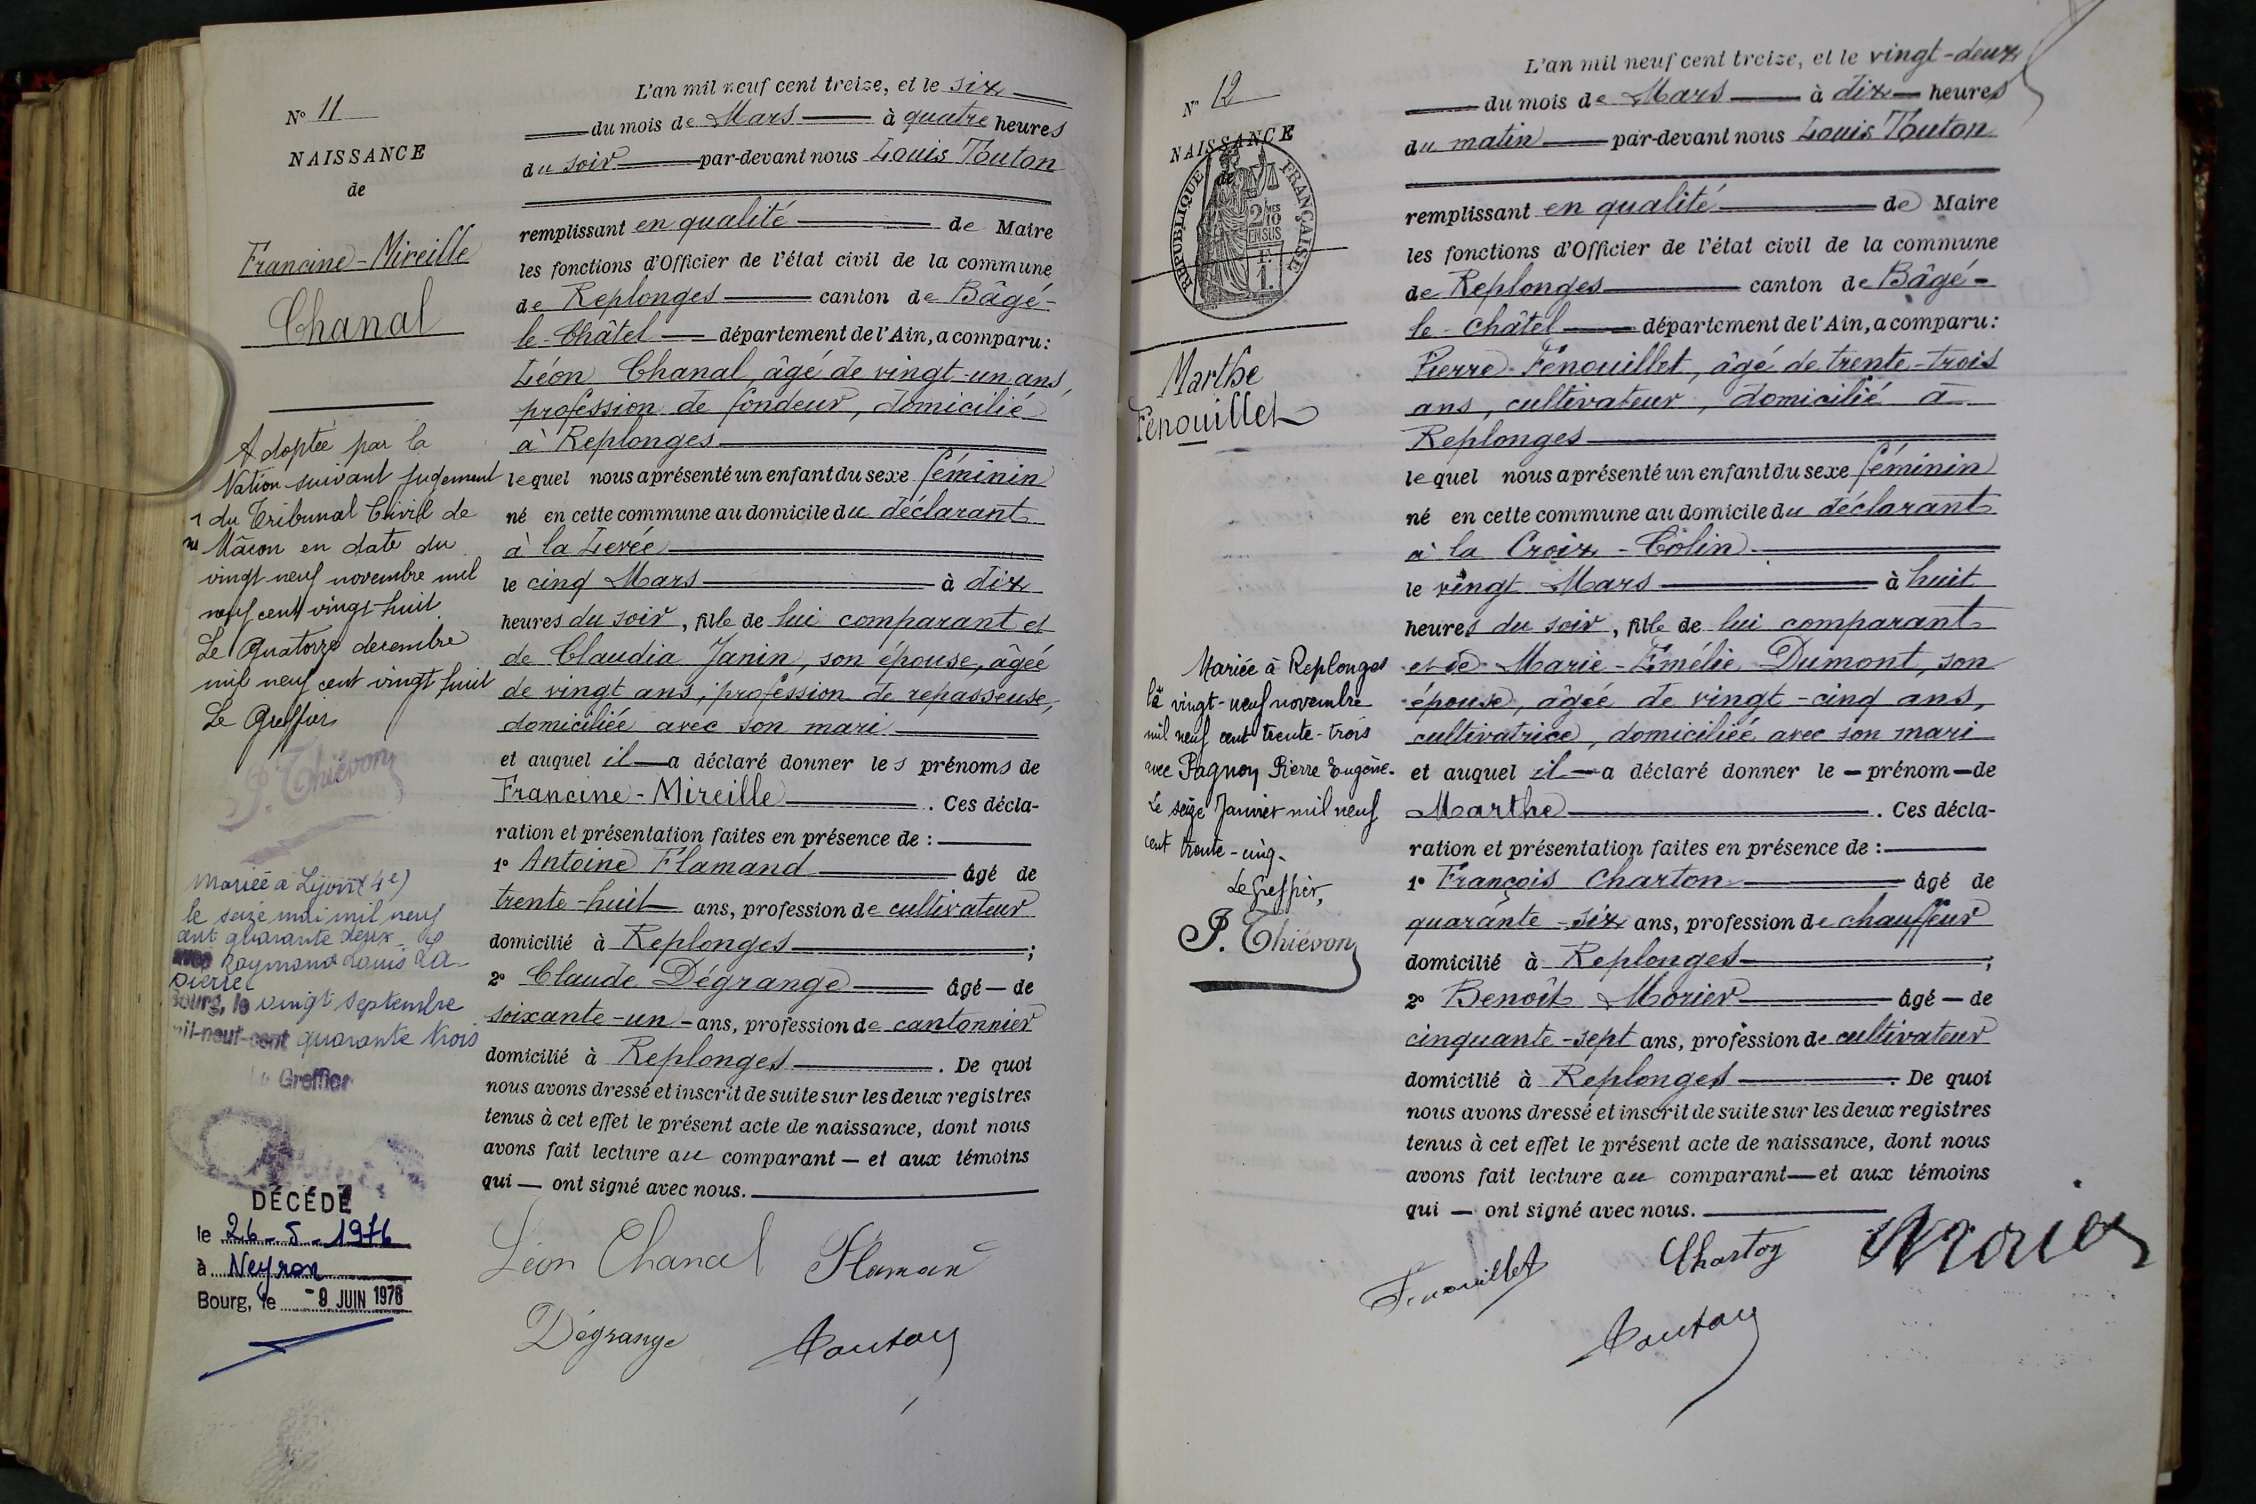 N° 11
NAISSANCE
de
Francine-Mireille
Chanal
Adoptée par la
Nation suivant jugement
du Tribunal Civil de
Mâcon en date du
vingt neuf novembre mil
neuf cent vingt-huit
Le Quatorze décembre
mil neuf cent vingt huit
Le Greffier
P. Thiévon
Mariée à Lyon (4e)
le seize mai mil neuf
cent quarante deux
avec Raymond Louis La
pierre
Bourg, le vingt septembre
mil-neuf-cent quarante trois
Le Greffier
DÉCÉDÉ
le 26-5-1976
à Neyron
Bourg, le -9 JUIN 1976
L'an mil neuf cent treize, et le six
du mois de Mars à quatre heures
du soir par-devant nous Louis Touton
remplissant en qualité de Maire
les fonctions d'Officier de l'état civil de la commune
de Replonges canton de Bâgé-
le-Châtel département de l'Ain, a comparu :
Léon Chanal âgé de vingt-un ans,
profession de fondeur, domicilié
à Replonges
lequel nous a présenté un enfant du sexe féminin
né en cette commune au domicile du déclarant
à la Levée
le cinq Mars à dix
heures du soir, fille de lui comparant et
de Claudia Janin, son épouse, âgée
de vingt ans, profession de repasseuse,
domiciliée avec son mari
et auquel il a déclaré donner les prénoms de
Francine-Mireille. Ces décla-
ration et présentation faites en présence de :
1° Antoine Flamand âgé de
trente-huit ans, profession de cultivateur
domicilié à Replonges ;
2° Claude Dégrange âgé de
soixante-un ans, profession de cantonnier
domicilié à Replonges. De quoi
nous avons dressé et inscrit de suite sur les deux registres
tenus à cet effet le présent acte de naissance, dont nous
avons fait lecture au comparant et aux témoins
qui ont signé avec nous.
Léon Chanal Flamand
Dégrange Touton
N° 12
NAISSANCE
de
RÉPUBLIQUE FRANÇAISE
2/10 MES
EN SUS
F.
1.
Marthe
Fenouillet
Mariée à Replonges
le vingt-neuf novembre
mil neuf cent trente-trois
avec Pagnon Pierre Eugène.
Le seize Janvier mil neuf
cent trente-cinq.
Le Greffier,
P. Thiévon
L'an mil neuf cent treize, et le vingt-deux
du mois de Mars à dix heures
du matin par-devant nous Louis Touton
remplissant en qualité de Maire
les fonctions d'Officier de l'état civil de la commune
de Replonges canton de Bâgé-
le-Châtel département de l'Ain, a comparu :
Pierre Fenouillet, âgé de trente-trois
ans, cultivateur, domicilié à
Replonges
lequel nous a présenté un enfant du sexe féminin
né en cette commune au domicile du déclarant
à la Croix-Colin
le vingt Mars à huit
heures du soir, fille de lui comparant
et de Marie-Emélie Dumont, son
épouse, âgée de vingt-cinq ans,
cultivatrice, domiciliée avec son mari
et auquel il a déclaré donner le prénom de
Marthe. Ces décla-
ration et présentation faites en présence de :
1° François Charton âgé de
quarante-six ans, profession de chauffeur
domicilié à Replonges ;
2° Benoît Morier âgé de
cinquante-sept ans, profession de cultivateur
domicilié à Replonges. De quoi
nous avons dressé et inscrit de suite sur les deux registres
tenus à cet effet le présent acte de naissance, dont nous
avons fait lecture au comparant et aux témoins
qui ont signé avec nous.
Fenouillet Charton Morier
Touton